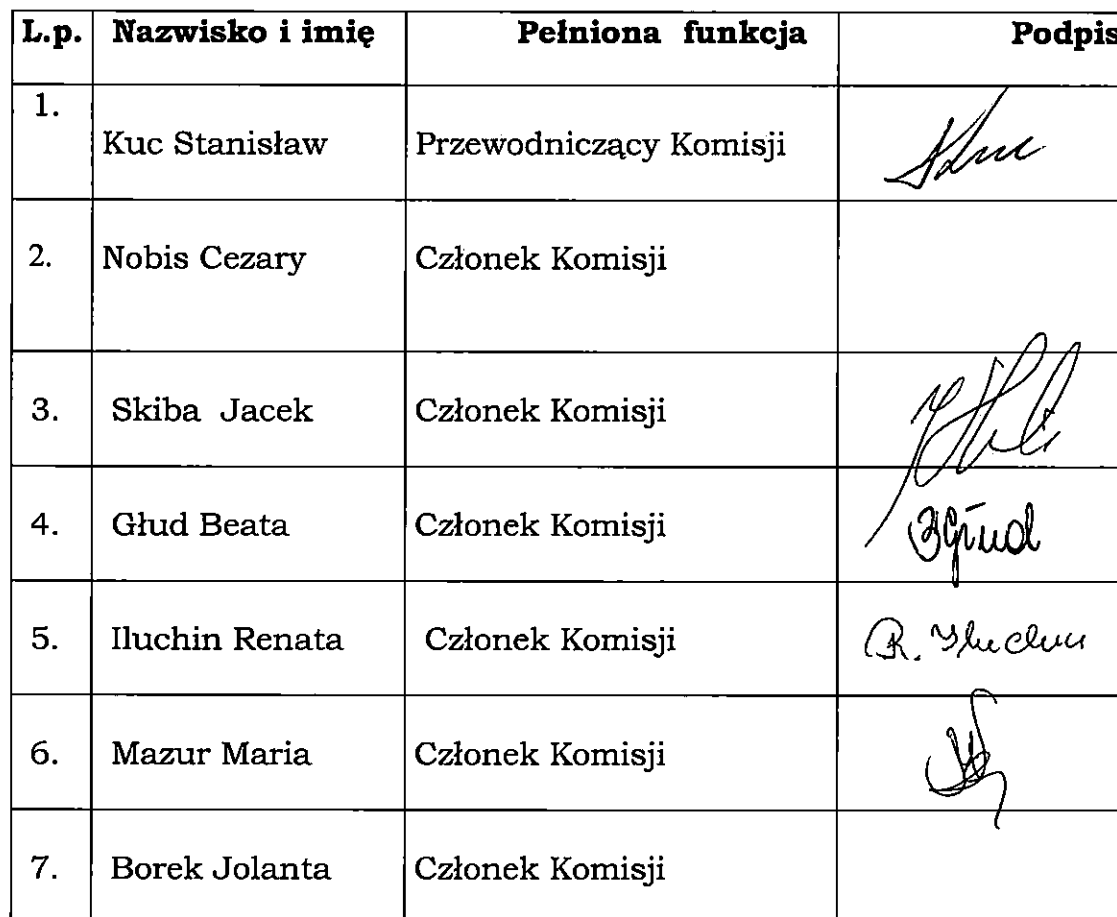 L.p. Nazwisko i imię Pełniona funkcja Podpis
1. Kuc Stanisław Przewodniczący Komisji
2. Nobis Cezary Członek Komisji
3. Skiba Jacek Członek Komisji
4. Głud Beata Członek Komisji BGłud
5. Iluchin Renata Członek Komisji R. Iluchin
6. Mazur Maria Członek Komisji
7. Borek Jolanta Członek Komisji